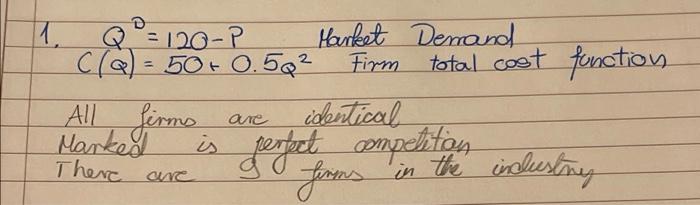 1. Q^D = 120 - P Market Demand
C(Q) = 50 + 0.5Q² Firm total cost function
All firms are identical
Marked is perfect competition
There are 9 firms in the industry